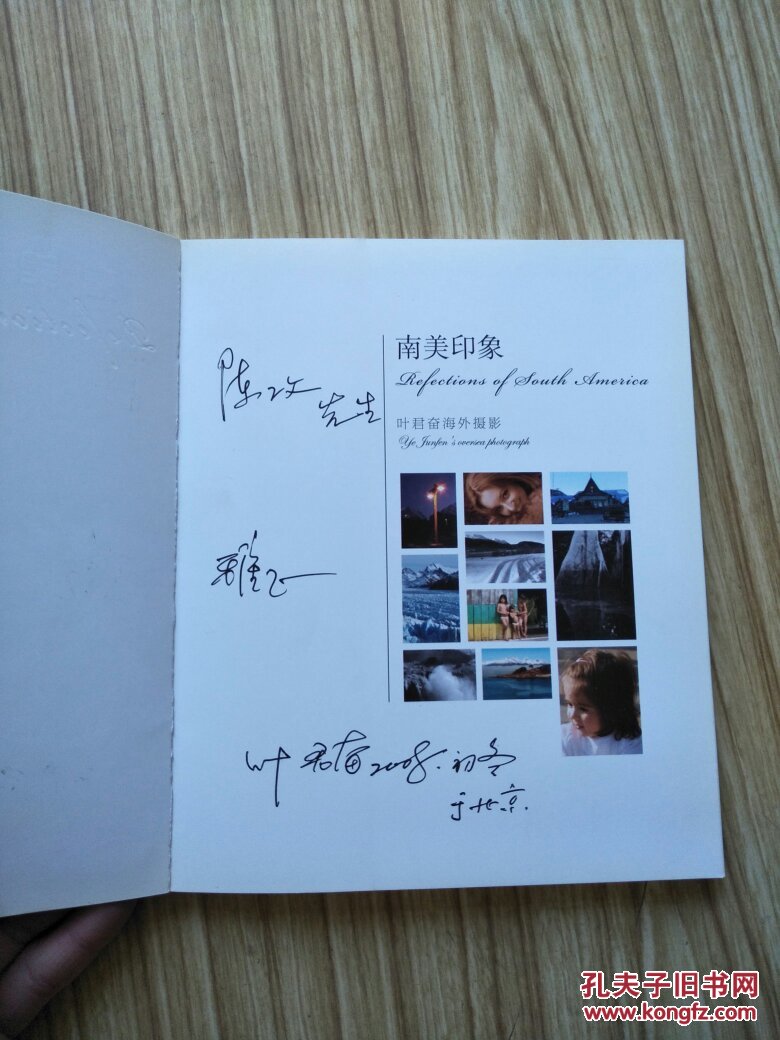 南美印象
Refections of South America
叶君奋海外摄影
Ye Junfen's oversea photograph
陈文
先生
雅正
叶君奋2008.初冬
于北京.
孔夫子旧书网
www.kongfz.com